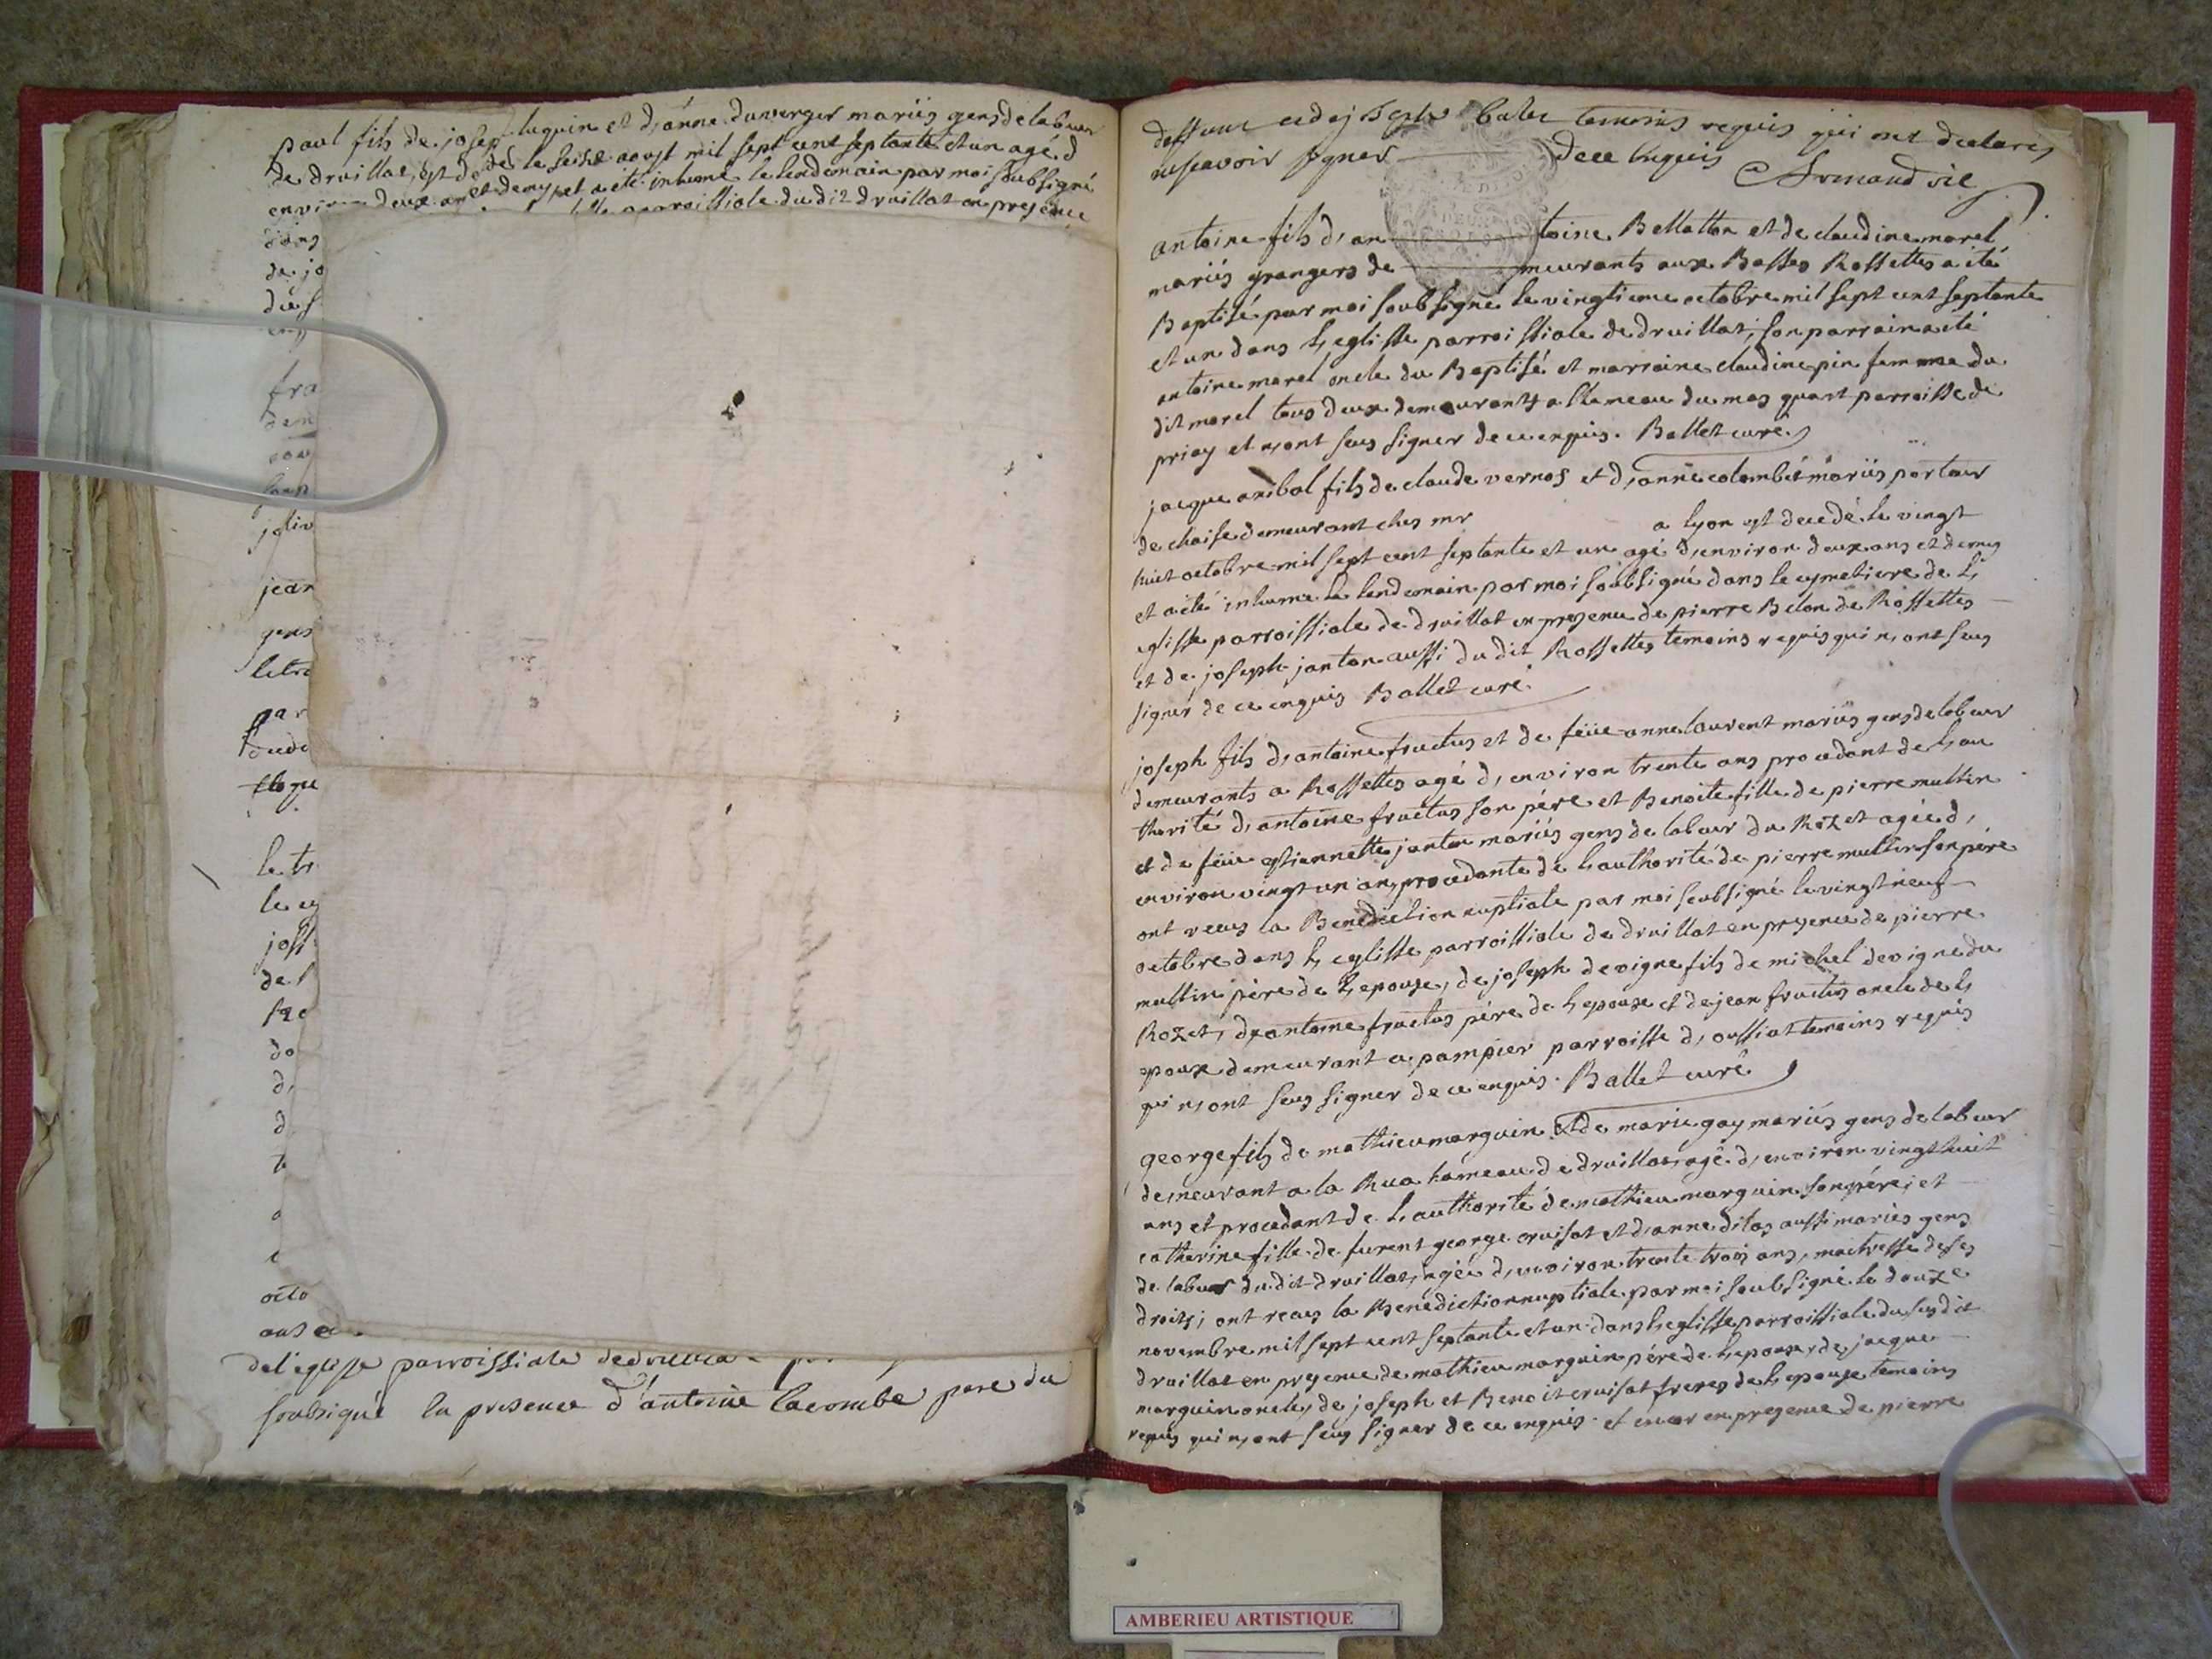 paul fils de joseph luquin et d'anne duverger mariés gens de labeur
de druillat, est decedé le seise aoust mil sept cent septante et un agé d
environ deux ans et demy, et a été inhumé le lendemain par moi soubsigné
dans parroissiale du dit druillat en presence
de jo
fra
dem
jean
gens
letre
par
le tr
le cy
joss
de l
do
d,
d
octo
ans e
de l'eglisse parroissiale de druillat
soubsigné En presence d'antoine lacombe pere du
deffunt et de joseph temoins requis qui ont declarés
ne scavoir signer de ce Enquis Armand vic
antoine fils d, an toine Bellatton et de claudine morel
mariés grangers de meurants aux Basses Rossettes a été
Baptisé par moi soubsigné le vingtieme octobre mil sept cent septante
et un dans L, eglisse parroissiale de druillat, son parrain a été
antoine morel oncle du Baptisé et marraine claudine pin femme du
dit morel tous deux demeurants a l'hameau du mas quart parroisse de
priay et n, ont seus signer de ce enquis. Ballet curé
jacque anibal fils de claude vernos et d, anne colombét mariés porteur
de chaise demeurant ches mr a lyon est decedé le vingt
huit octobre mil sept cent septante et un agé d, environ deux ans et demy
et a été inhumé le lendemain par moi soubsigné dans le cymetiere de L,
eglisse parroissiale de druillat en presence de pierre Belon de Rossettes
et de joseph janton aussi du dit Rossettes temoins requis qui n, ont seus
signer de ce enquis Ballet curé
joseph fils d, antoine fructus et de feüe anne laurent mariés gens de labeur
demeurants a Rossettes agé d, environ trente ans procedant de L, au
thorité d, antoine fructus son pére et Benoite fille de pierre multin
et de feüe estiennette janton mariés gens de labeur du Rozet agée d,
environ vingt un an, procedante de L, authorité de pierre multin son pére
ont receus la Benediction nuptiale par moi soubsigné le vingt neuf
octobre dans L, eglisse parroissiale de druillat en presence de pierre
multin pére de L, epouse, de joseph devigne fils de michel devigne du
Rozet, d, antoine fructus pére de L, epoux et de jean fructus oncle de L,
epoux demeurant a pampier parroisse d, oussiat temoins requis
qui n, ont seus signer de ce enquis. Ballet curé
george fils de mathieu marguin et de marie gay mariés gens de labeur
demeurant a la Rua hameau de druillat, agé d, environ vingt huit
ans et procedant de L, authorité de mathieu marguin son pére; et
catherine fille de furent george cruisat et d, anne ditas aussi mariés gens
de labeur du dit druillat, agée d, environ trente trois ans, maitresse de ses
droits; ont receus la Benediction nuptiale par moi soubsigné le douze
novembre mil sept cent septante et un dans L, eglisse parroissiale du susdit
druillat en presence de mathieu marguin pére de L, epoux, de jacque
marguin oncle, de joseph et Benoit cruisat freres de L, epouse temoins
requis qui n, ont seus signer de ce enquis. et encor en presence de pierre
AMBERIEU ARTISTIQUE